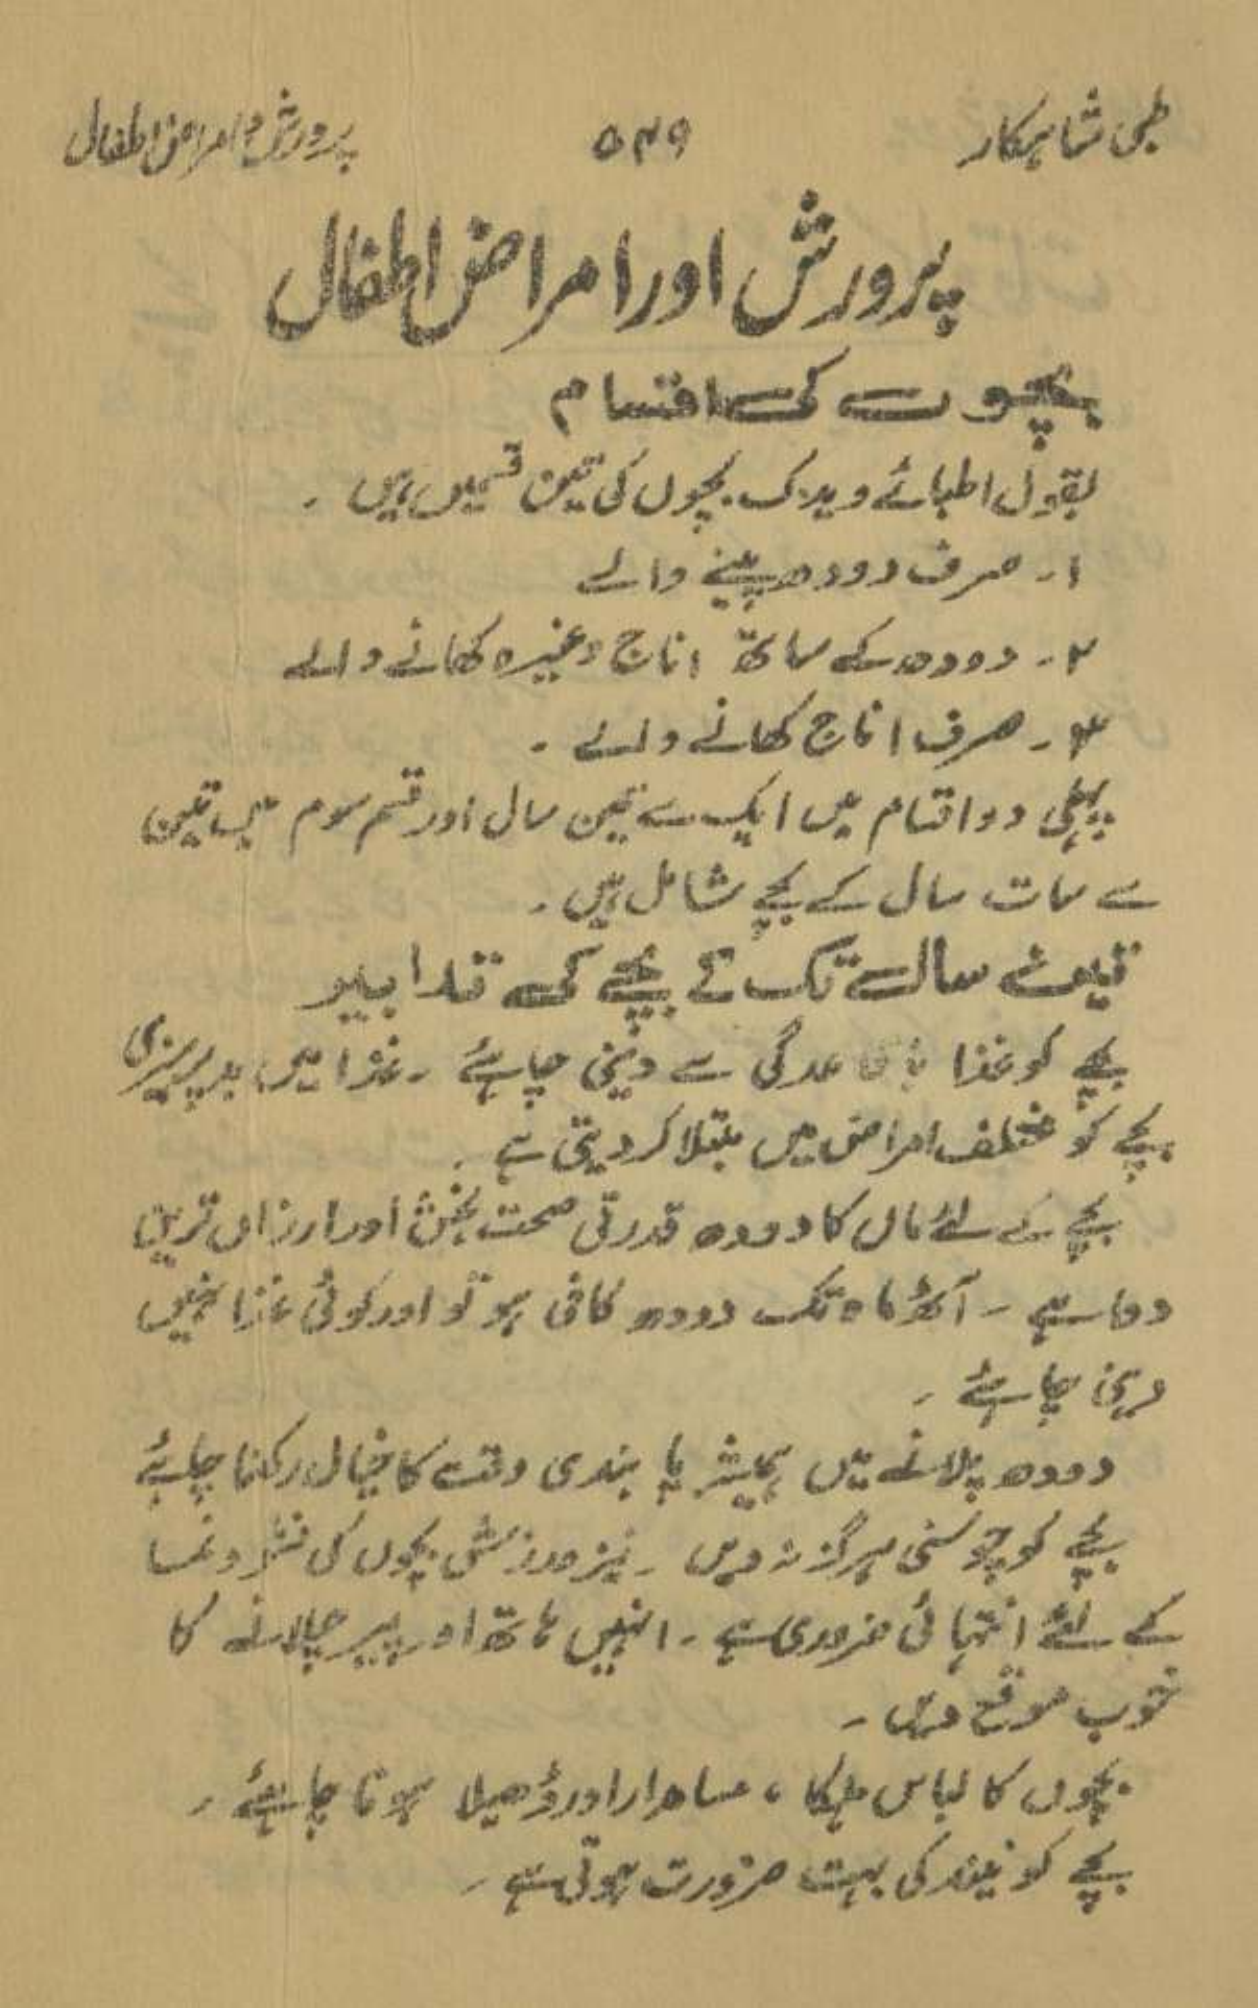 طبی شاہکار ۵۴۹ پرورش و امراض اطفال
پرورش اور امراض اطفال
بچوں کی اقسام
بقول اطبائے ویدک بچوں کی تین قسمیں ہیں ۔
۱۔ صرف دودھ پینے والے
۲۔ دودھ کے ساتھ اناج وغیرہ کھانے والے
۳۔ صرف اناج کھانے والے ۔
پہلی دو اقسام میں ایک سے تین سال اور قسم سوم میں تین
سے سات سال کے بچے شامل ہیں ۔
تین سال تک کے بچے کی تدابیر
بچے کو غذا عمدگی سے دینی چاہئے ۔ غذا میں بدپرہیزی
بچے کو مختلف امراض میں مبتلا کر دیتی ہے ۔
بچے کے لئے ماں کا دودھ قدرتی صحت بخش اور ارزاں ترین
دوا ہے ۔ آٹھ ماہ تک دودھ کافی ہو تو اور کوئی غذا نہیں
دینی چاہئے ۔
دودھ پلانے میں ہمیشہ پابندی وقت کا خیال رکھنا چاہئے
بچے کو چوسنی ہرگز نہ دیں ۔ نیز ورزش بچوں کی نشوونما
کے لئے انتہائی ضروری ہے ۔ انہیں ہاتھ اور پیر چلانے کا
خوب موقع دیں ۔
بچوں کا لباس ہلکا ، مسامدار اور ڈھیلا ہونا چاہئے ۔
بچے کو نیند کی بہت ضرورت ہوتی ہے ۔